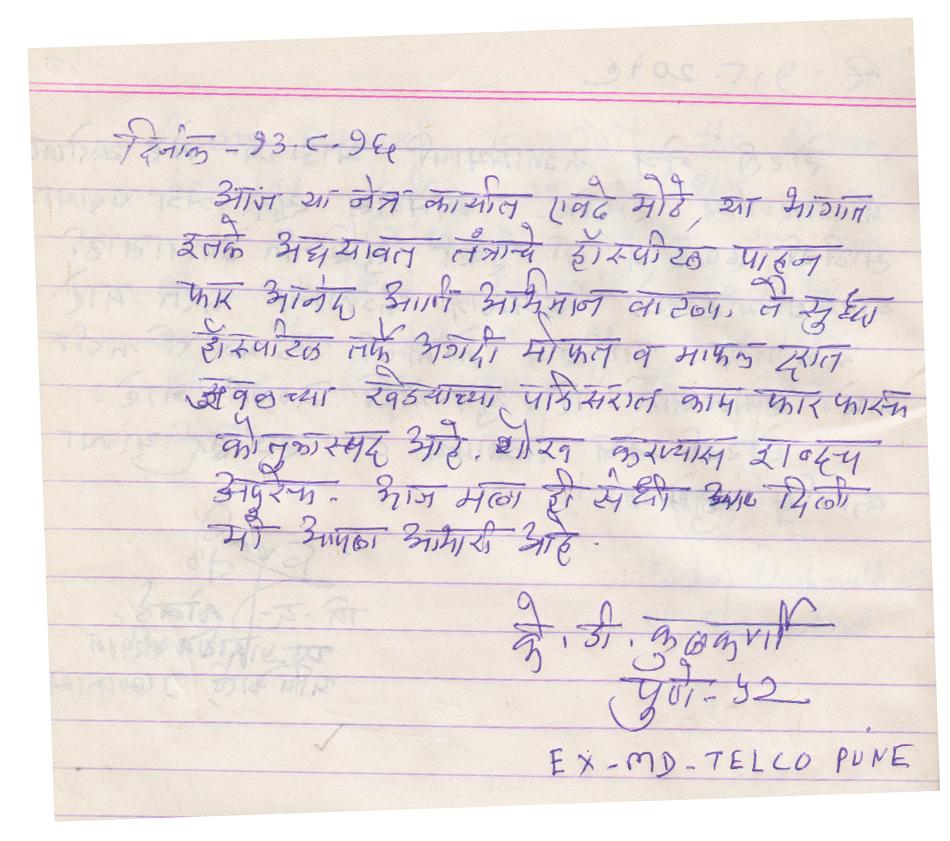 दिनांक - १३-८-१६
आज या नेत्र कार्यात एवढे मोठे, या भागात
इतके अद्ययावत तंत्राचे हॉस्पीटल पाहून
फार आनंद आणि अभिमान वाटला. ते सुध्दा
हॉस्पीटल तर्फे अगदी मोफत व माफक दरात
जवळच्या खेड्याच्या, परिसरात काम फार फारच
कौतुकास्पद आहे. गौरव करण्यास शब्दच
अपुरेच. आज मला ही संधी आपण दिली
मी आपला आभारी आहे.
के. डी. कुळकर्णी
पुणे - ५२
EX-MD-TELCO PUNE